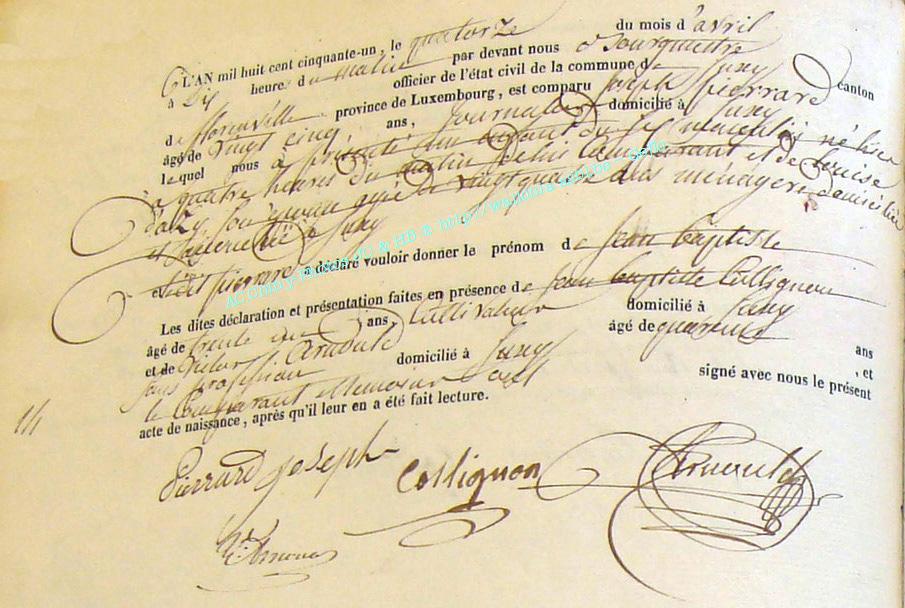 L'AN mil huit cent cinquante-un, le quatorze du mois d'avril
à dix heures du matin par devant nous
officier de l'état civil de la commune de Jusy canton
de florenville province de Luxembourg, est comparu Joseph Pierrard
âgé de vingt cinq ans, Journalier domicilié à Jusy
lequel nous à présenté un enfant du sexe masculin né hier
à quatre heures du matin de lui comparant et de Louise
son épouse agée de vingt quatre ans ménagère domiciliée
et à Jusy
et dit pierrard a déclaré vouloir donner le prénom de Jean Baptiste
Les dites déclaration et présentation faites en présence de Jean Baptiste Collignon
âgé de trente un ans, Cultivateur domicilié à Jusy
et de Victor Arnould âgé de quarante ans
sans profession domicilié à Jusy , et
le comparant et témoins ont signé avec nous le présent
acte de naissance, après qu'il leur en a été fait lecture.
Pierrard Joseph Collignon Arnould